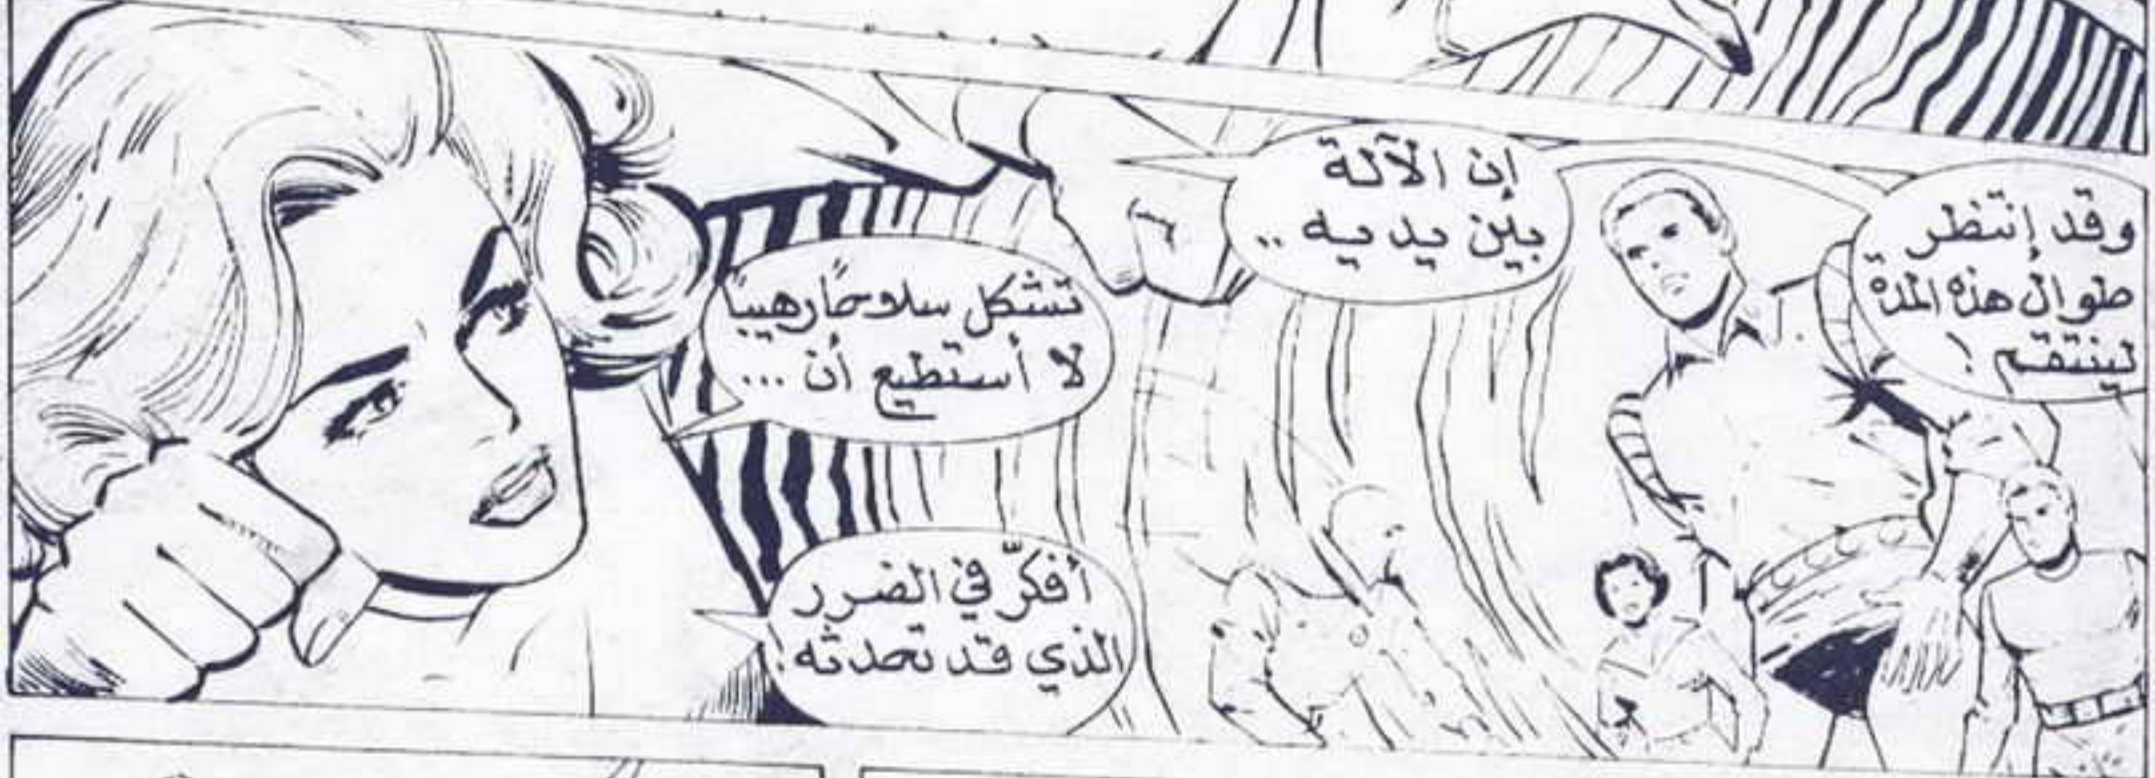 وقد إنتظر
طوال هذه المدة
لينتقم !
إن الآلة
بين يديه ..
تشكل سلاحًا رهيبًا
لا أستطيع أن ...
أفكّر في الضرر
الذي قد تحدثه !